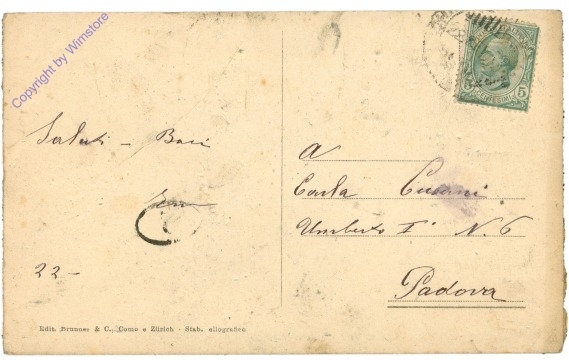 Copyright by Wimstore
Saluti - Baci
22-
A
Carla Cusani
Umberto I° N. 6
Padova
5 5
Edit. Brunner & C., Como e Zürich - Stab. eliografico